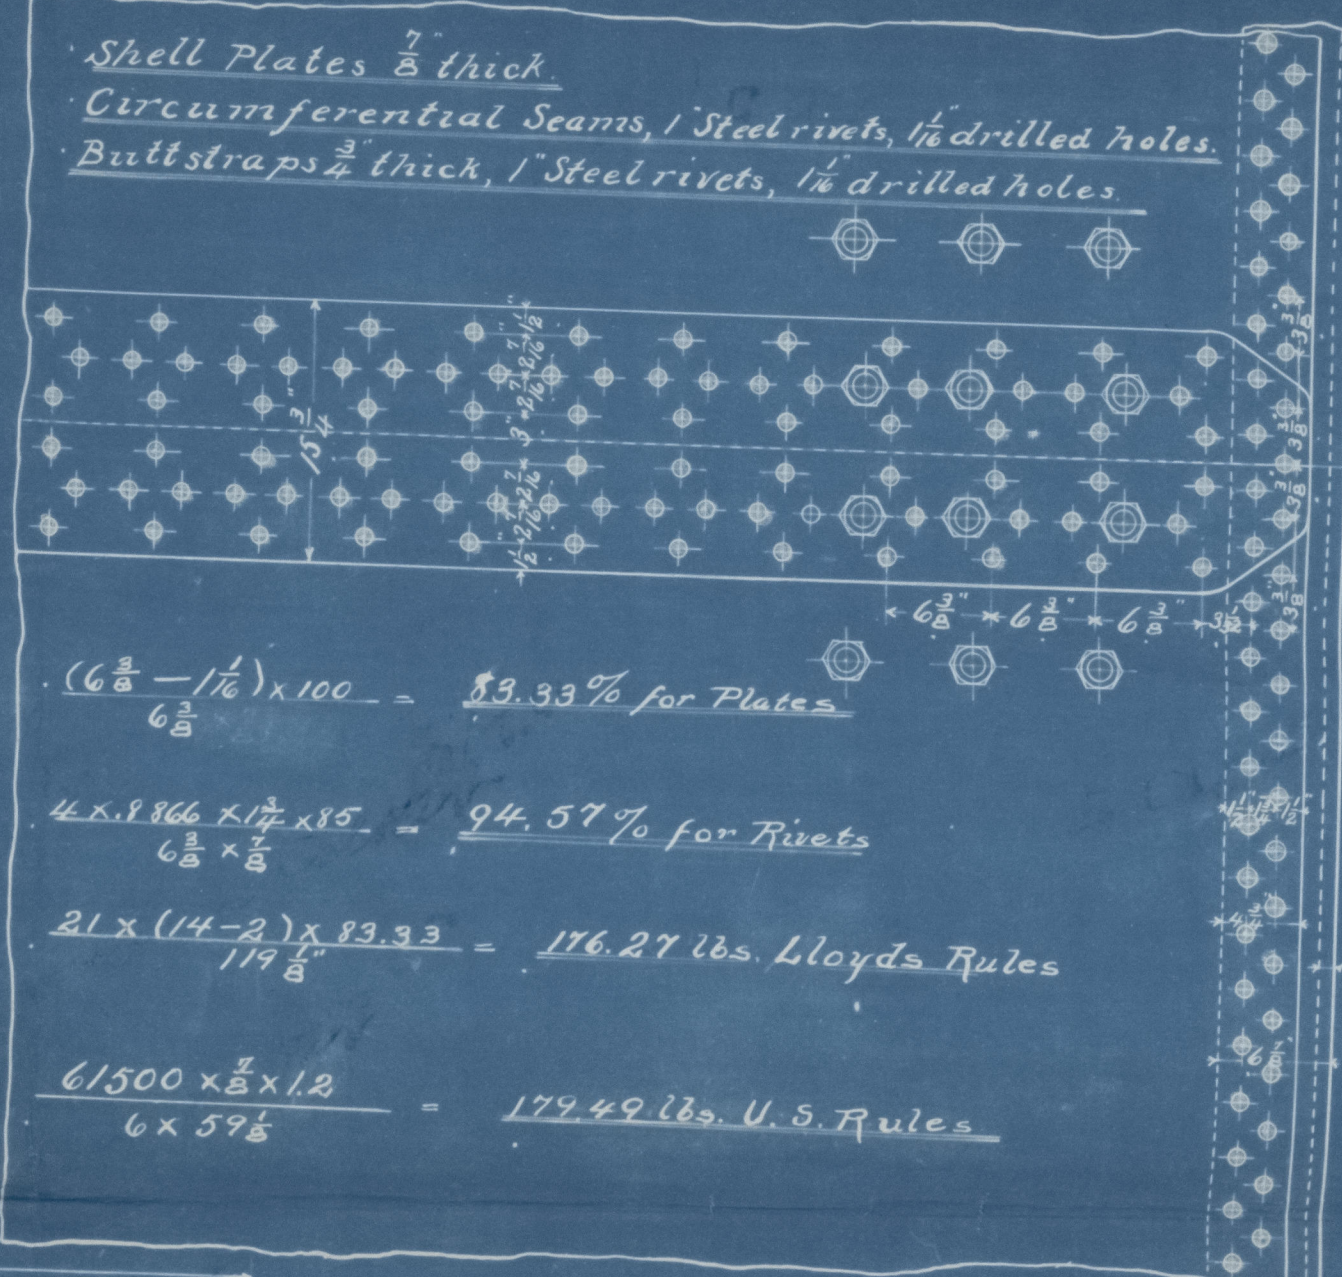 Shell Plates 7/8" thick.
Circumferential Seams, 1" Steel rivets, 1 1/16" drilled holes.
Buttstraps 3/4" thick, 1" Steel rivets, 1 1/16" drilled holes.
1 1/2" 2 7/16" 2 7/16" 3" 2 7/16" 2 7/16" 1 1/2"
15 3/4"
3 3/8"
3 3/8"
3 3/8"
3 3/8"
6 3/8" 6 3/8" 6 3/8" 3 1/2"
(6 3/8 - 1 1/16) x 100 / 6 3/8 = 83.33% for Plates
4 x .8866 x 1 3/4 x 85 / 6 3/8 x 7/8 = 94.57% for Rivets
1 1/2" 1 3/4" 1 1/2"
21 x (14-2) x 83.33 / 119 1/8" = 176.27 lbs. Lloyds Rules
4 3/4"
6 7/8"
61500 x 7/8 x 1.2 / 6 x 59 1/8 = 179.49 lbs. U.S. Rules